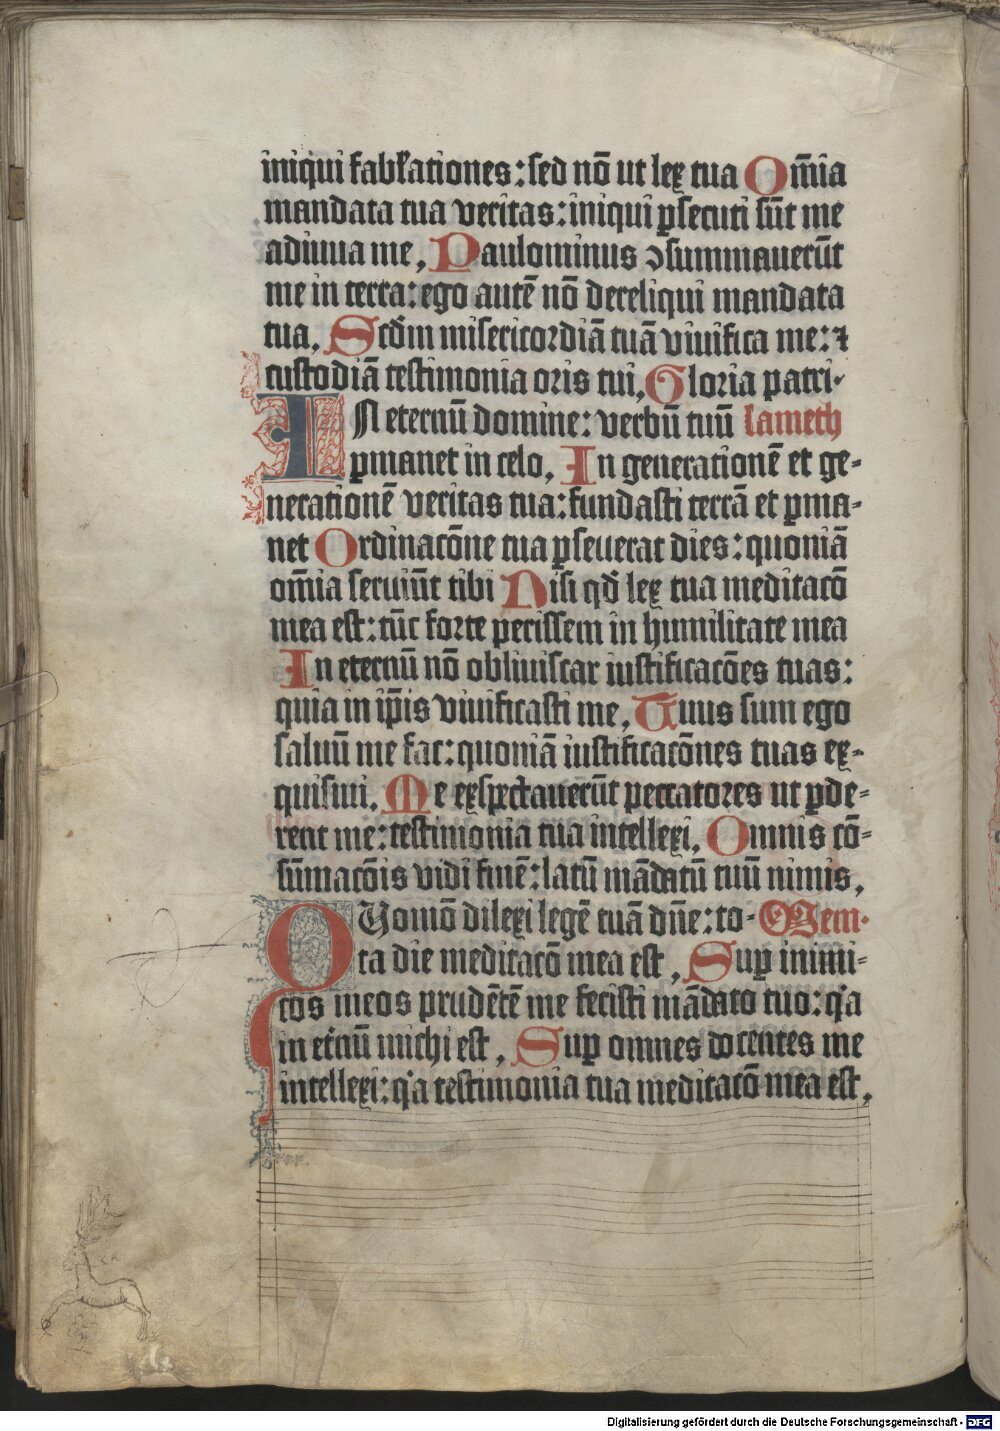 iniqui fabl̓ationes: sed nō ut lex tua Om̄ia
mandata tua veritas: iniqui ꝑsecuti sūt me
adiuua me, Paulominus ↄsummauerūt
me in terra: ego autē nō dereliqui mandata
tua, Scd̄m misericordiā tuā viuifica me: ⁊
custodiā testimonia oris tui, Gloria patri·
IN eternū domine: verbū tuū lameth
ꝑmanet in celo, In generationē et ge-
nerationē veritas tua: fundasti terrā et ꝑma-
net Ordinacōne tua ꝑseuerat dies: quoniā
om̄ia seruiūt tibi Nisi qd̄ lex tua meditacō
mea est: tūc forte perissem in humilitate mea
In eternū nō obliuiscar iustificacōes tuas:
quia in ip̄is viuificasti me, Tuus sum ego
saluū me fac: quoniā iustificacōnes tuas ex-
quisiui, Me exspectauerūt peccatores ut ꝑde-
rent me: testimonia tua intellexi, Omnis cō-
sūmacōis vidi finē: latū mādatū tuū nimis,
QUomō dilexi legē tuā dn̄e: to- Mem·
ta die meditacō mea est, Suꝑ inimi-
cos meos prudētē me fecisti mādato tuo: q̓a
in et̓nū michi est, Suꝑ omnes docentes me
intellexi: q̓a testimonia tua meditacō mea est,
Digitalisierung gefördert durch die Deutsche Forschungsgemeinschaft - DFG